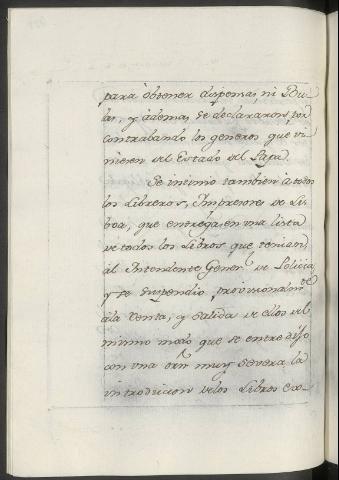 para obtener dispensas, ni Bu-
las, y ademas se declararon por
contrabando los generos que vi-
niesen del Estado del Papa.
Se intimo tambien à todos
los Libreros, Impresores de Lis-
boa, que entregasen una lista
de todos los Libros que tenian,
al Intendente Gener.l de Policia,
y se suspendio provisionalm.te
ála venta, y salida de ellos del
mismo modo que se entredijo
con una orn muy severa la
introduccion delos Libros ex-